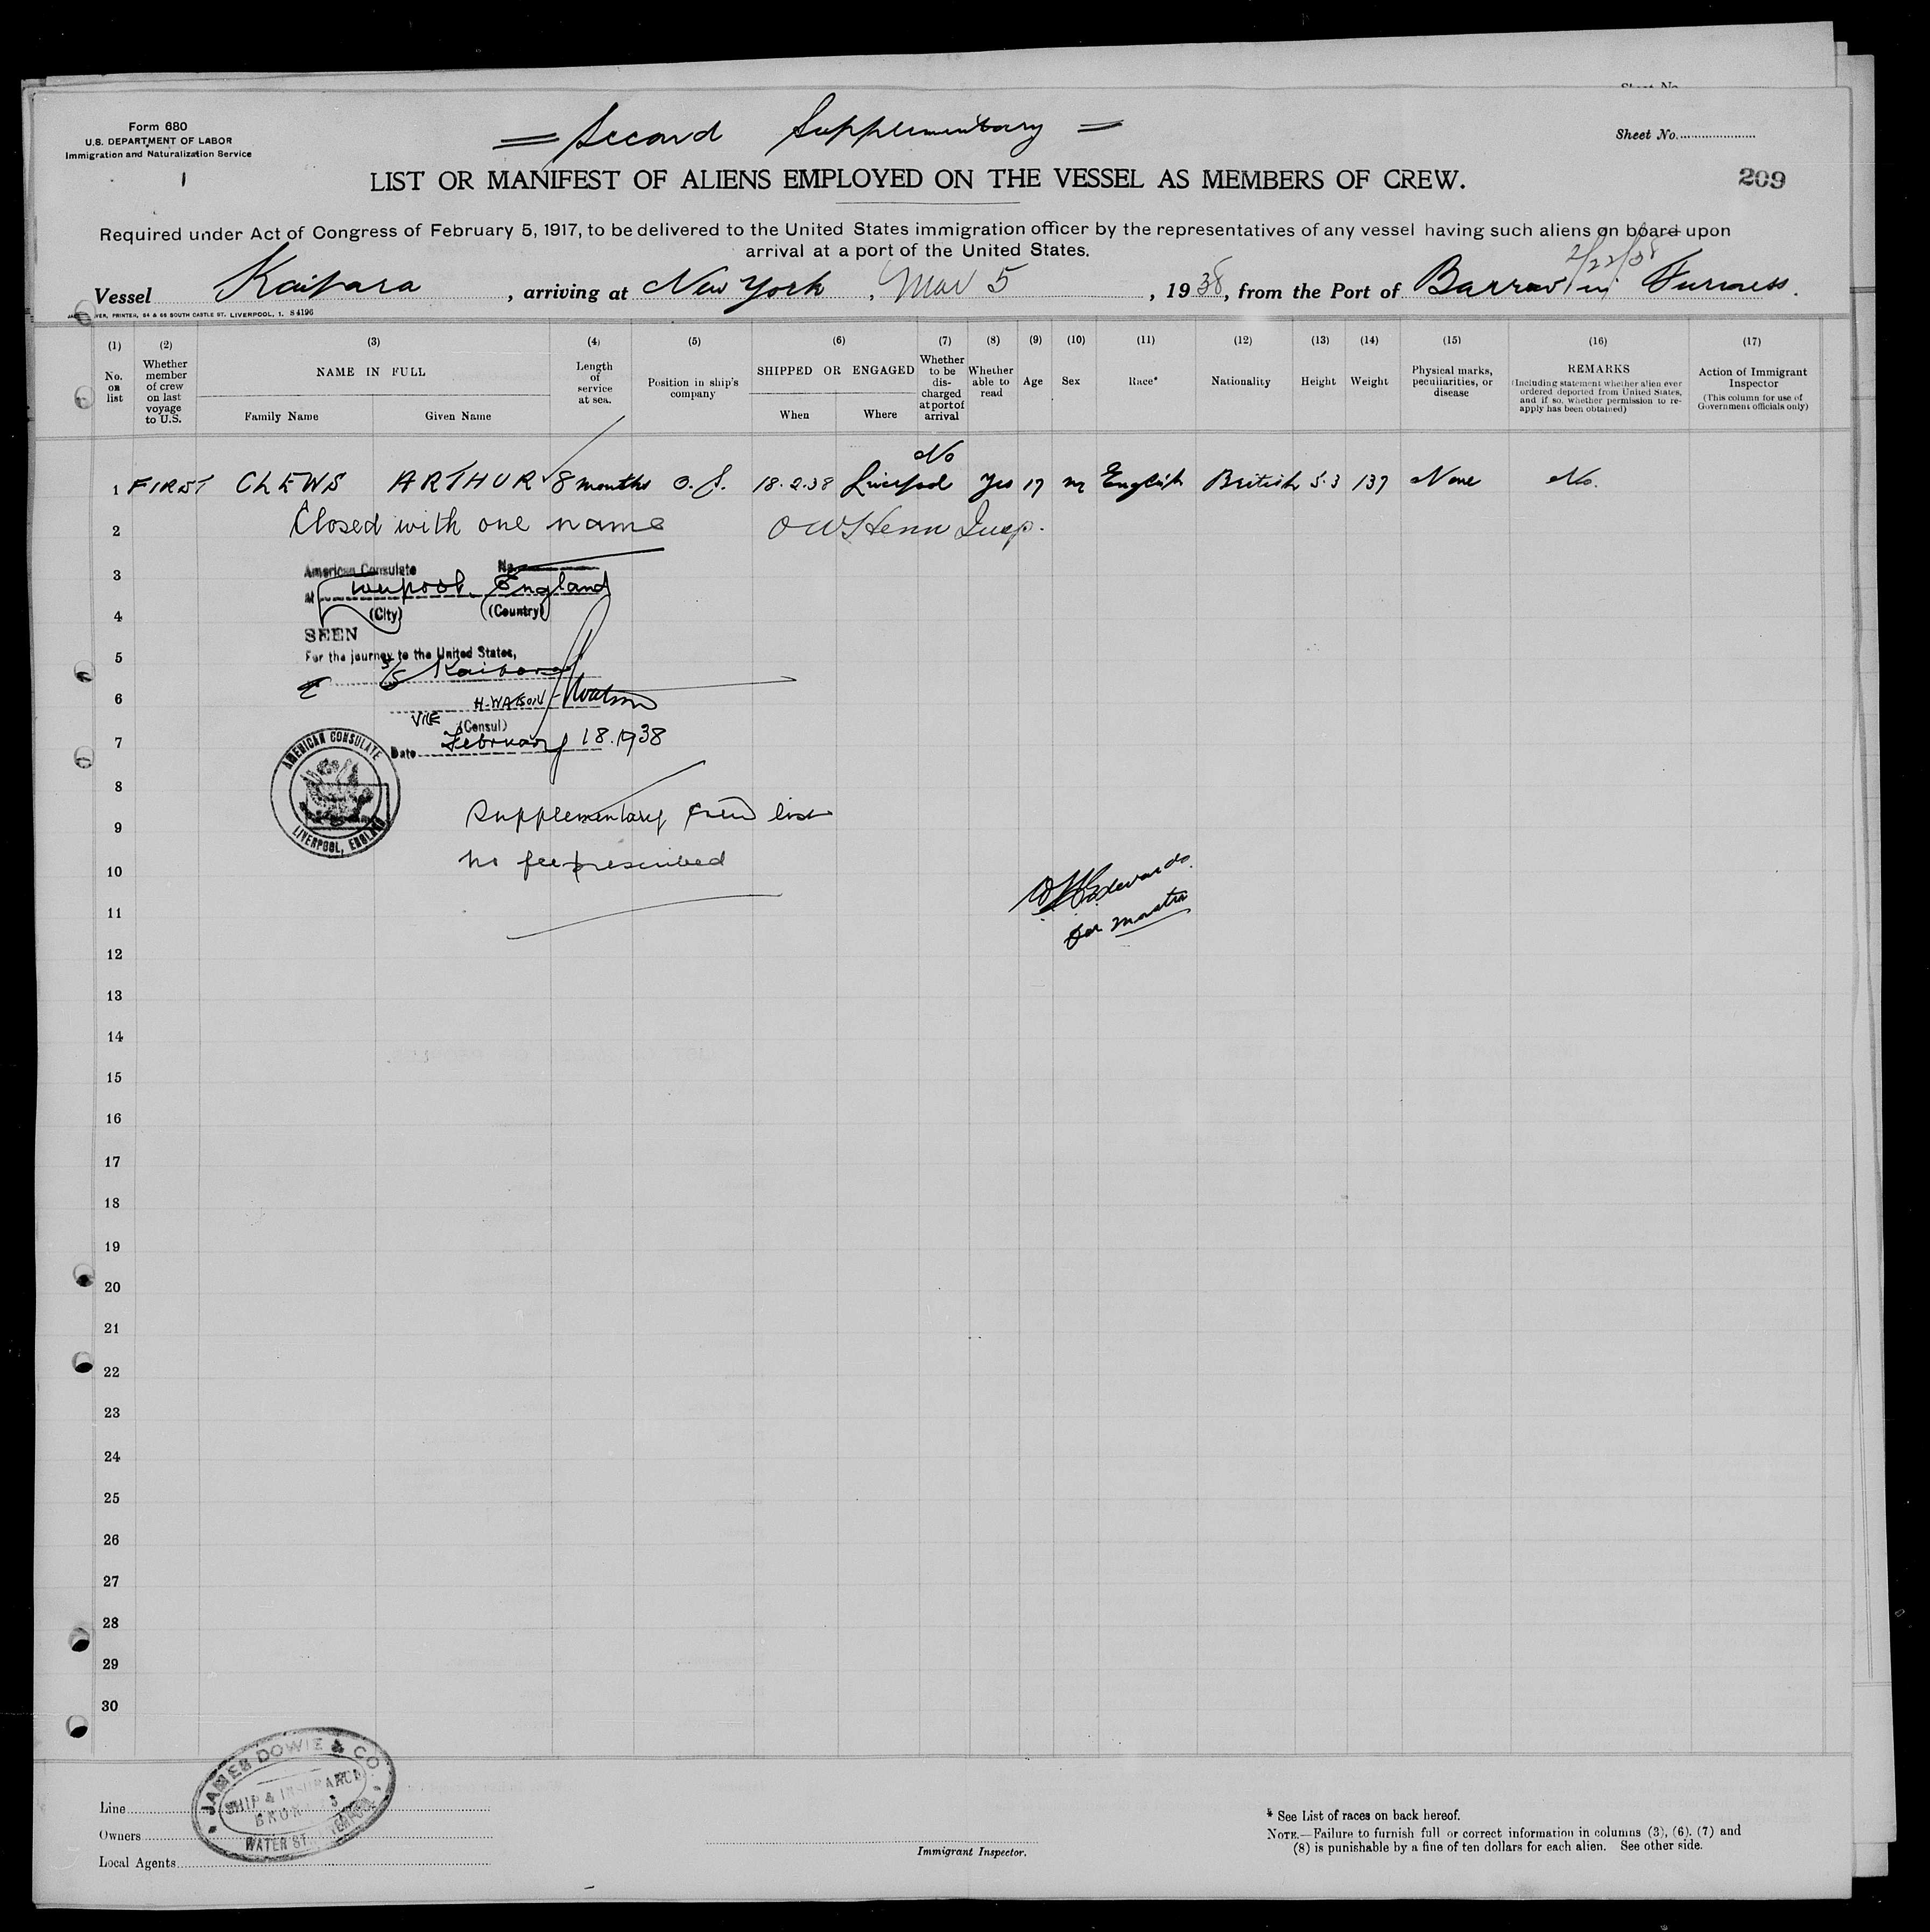 Sheet No.
Form 680
U.S. DEPARTMENT OF LABOR
Immigration and Naturalization Service
1
= Second Supplementary =
Sheet No.
209
LIST OR MANIFEST OF ALIENS EMPLOYED ON THE VESSEL AS MEMBERS OF CREW.
Required under Act of Congress of February 5, 1917, to be delivered to the United States immigration officer by the representatives of any vessel having such aliens on board upon
arrival at a port of the United States.
2/22/38
Vessel Kaipara, arriving at New York, Mar 5, 1938, from the Port of Barrow in Furness.
PRINTER, 54 & 56 SOUTH CASTLE ST. LIVERPOOL, 1. 84196
(1) (2) (3) (4) (5) (6) (7) (8) (9) (10) (11) (12) (13) (14) (15) (16) (17)
No. on list
Whether member of crew on last voyage to U.S.
NAME IN FULL
Family Name Given Name
Length of service at sea.
Position in ship's company
SHIPPED OR ENGAGED
When Where
Whether to be discharged at port of arrival
Whether able to read
Age
Sex
Race*
Nationality
Height
Weight
Physical marks, peculiarities, or disease
REMARKS
(Including statement whether alien ever ordered deported from United States, and if so, whether permission to re-apply has been obtained)
Action of Immigrant Inspector
(This column for use of Government officials only)
No
1 FIRST CLEWS ARTHUR 8 months O.S. 18.2.38 Liverpool Yes 17 m English British 5.3 137 None No.
2 Closed with one name Insp.
American Consulate No.
3
at Liverpool, England
4 (City) (Country)
SEEN
5 For the journey to the United States,
S/S Kaipara
6 H. WATSON H Watson
VICE (Consul)
7 Date February 18. 1938
AMERICAN CONSULATE
LIVERPOOL, ENGLAND
8
9 Supplementary crew list
10 no fee prescribed
Edwards.
11 for master
12
13
14
15
16
17
18
19
20
21
22
23
24
25
26
27
28
29
30
JAMES DOWIE & CO.
SHIP & INSURANCE
BROKERS
WATER ST. LIVERPOOL
Line
Owners
Local Agents
Immigrant Inspector.
* See List of races on back hereof.
NOTE.—Failure to furnish full or correct information in columns (3), (6), (7) and
(8) is punishable by a fine of ten dollars for each alien. See other side.